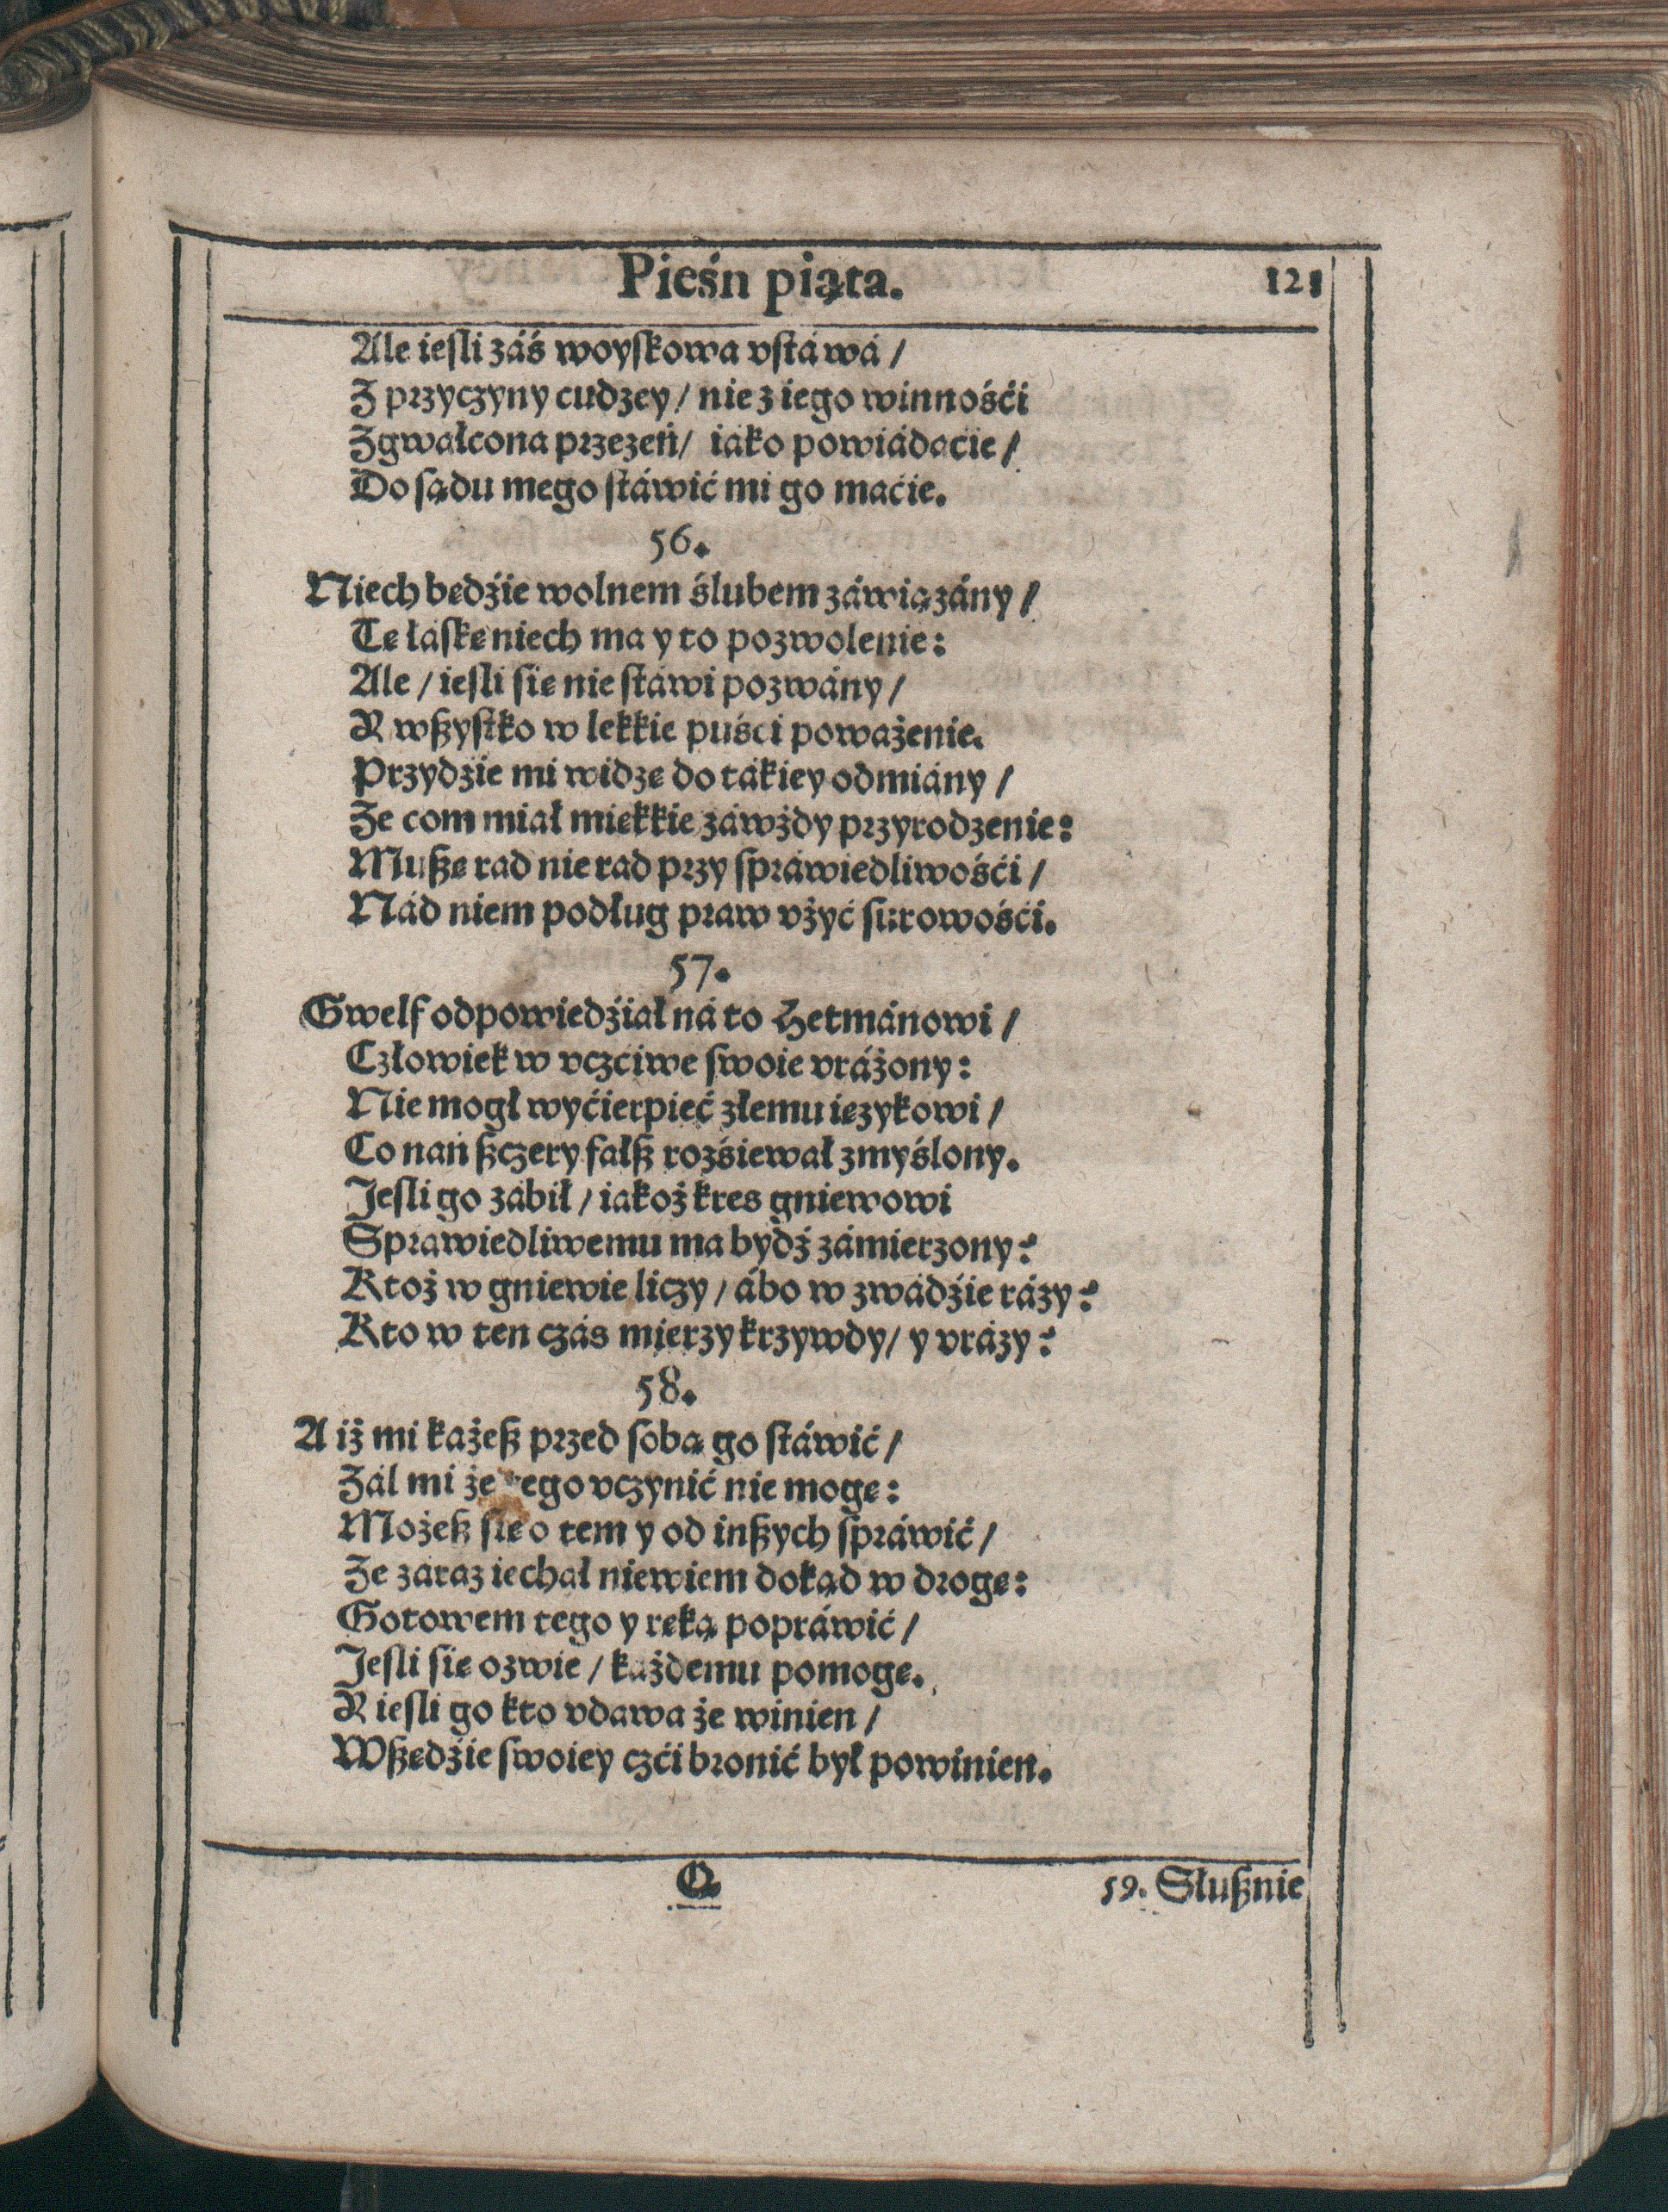 Pieśń piąta.
121
Ale ieſli záś woyſkowa vſtáwá /
Z przyczyny cudzey / nie z iego winnośći
Zgwałcona przezeń / iáko powiádaćie /
Do ſądu mego ſtáwić mi go maćie.
56.
Niech będźie wolnem ślubem záwiązány /
Tę łáſkę niech ma y to pozwolenie:
Ale / ieſli ſię nie ſtáwi pozwány /
A wßyſtko w lekkie puśći poważenie.
Przydźie mi widzę do tákiey odmiány /
Że com miał miękkie záwżdy przyrodzenie:
Mußę rad nie rad przy ſpráwiedliwośći /
Nád niem podług praw vżyć ſurowośći.
57.
Gwelf odpowiedźiał ná to Hetmánowi /
Człowiek w vczćiwe ſwoie vráżony:
Nie mogł wyćierpieć złemu ięzykowi /
Co nań ßczery fałß rozśiewał zmyślony.
Jeſli go zábił / iákoż kres gniewowi
Sprawiedliwemu ma bydź zámierzony?
Ktoż w gniewie liczy / ábo w zwádźie rázy?
Kto w ten czás mierzy krzywdy / y vrázy?
58.
A iż mi każeß przed ſobą go ſtáwić /
Żal mi że tego vczynić nie mogę:
Możeß ſię o tem y od inßych ſpráwić /
Że záraz iechał niewiem dokąd w drogę:
Gotowem tego y ręką popráwić /
Jeſli ſię ozwie / każdemu pomogę.
A ieſli go kto vdawa że winien /
Wßędźie ſwoiey czći bronić był powinien.
Q
59. Słußnie